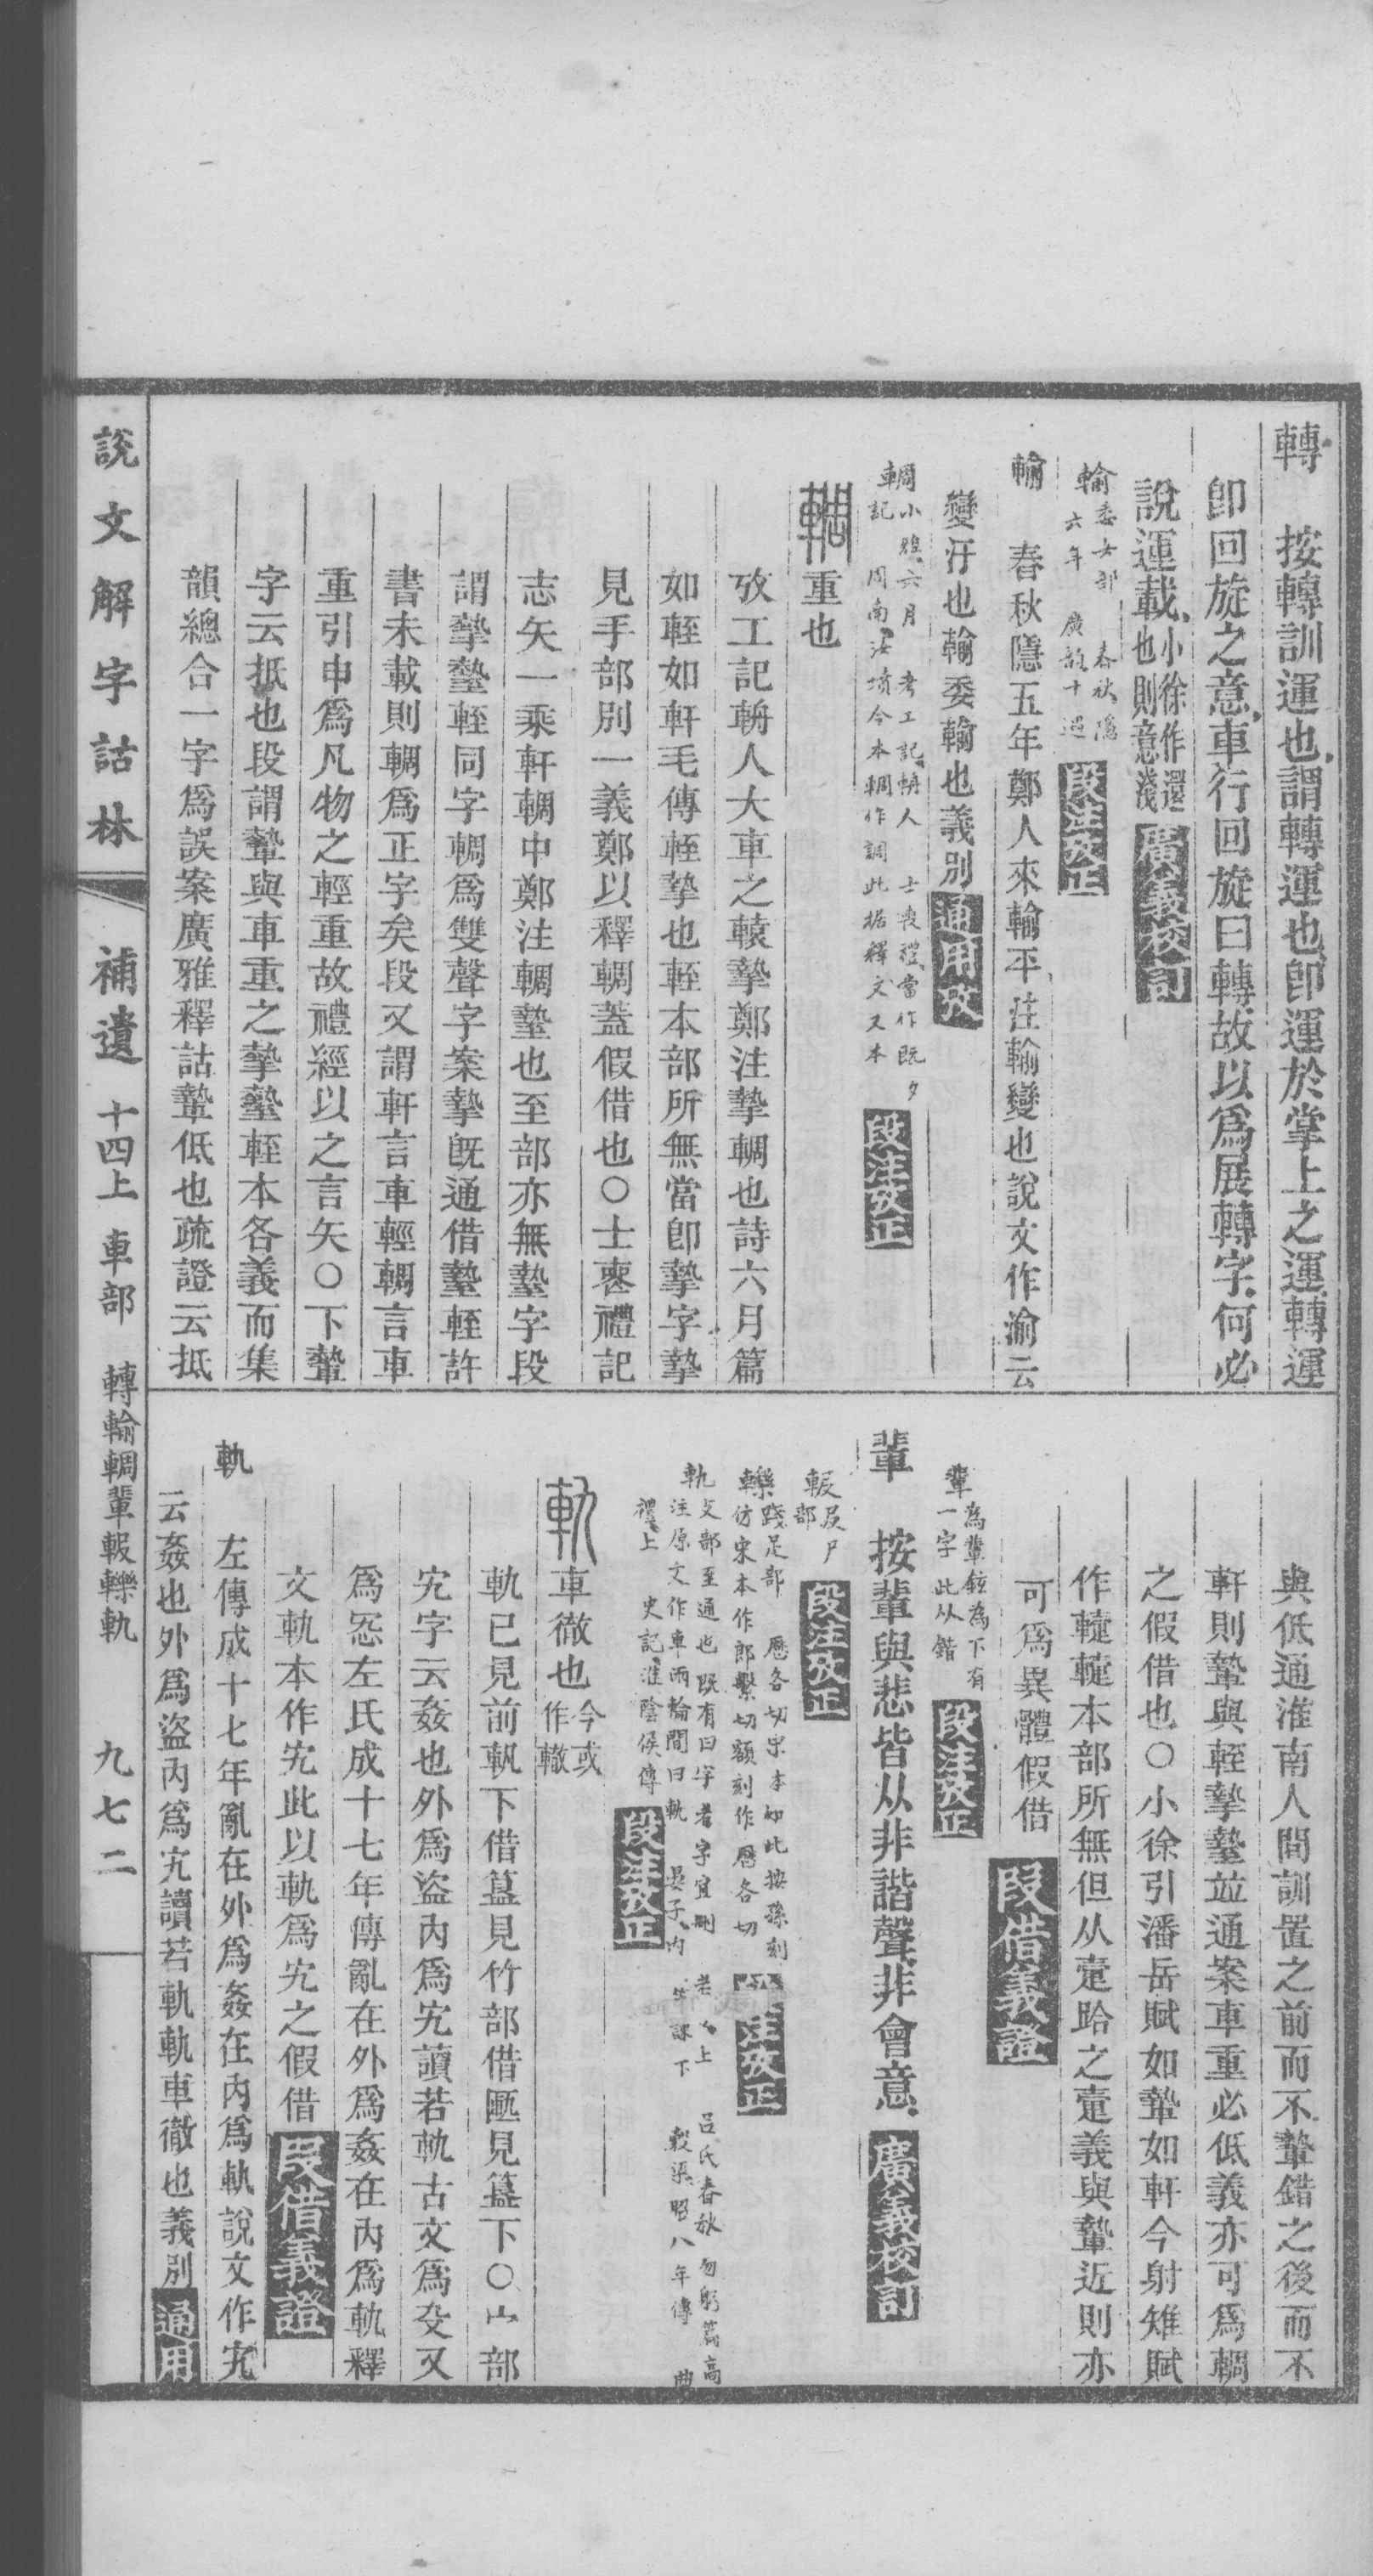 轉　按轉訓運也謂轉運也卽運於掌上之運轉運
卽回旋之意車行回旋曰轉故以爲展轉字何必
說運載小徐作還也則意淺 廣義校訂
輸委女部　春秋隱
六年　廣韵十遇 段注攷正
輸　春秋隱五年鄭人來輸平注輸變也說文作渝云
變汙也輸委輸也義別 通用攷
輖小雅六月　考工記輈人　士喪禮當作既夕
記　周南汝墳今本輖作調此据釋文又本 段注攷正
輖重也
攷工記輈人大車之轅摯鄭注摯輖也詩六月篇
如輊如軒毛傳輊摯也輊本部所無當卽摯字摯
見手部別一義鄭以釋輖蓋假借也○士喪禮記
志矢一乘軒輖中鄭注輖墊也至部亦無墊字段
謂摯墊輊同字輖爲雙聲字案摯旣通借墊輊許
書未載則輖爲正字矣段又謂軒言車輕輖言車
重引申爲凡物之輕重故禮經以之言矢○下蟄
字云抵也段謂蟄與車重之摯墊輊本各義而集
韻總合一字爲誤案廣雅釋詁蟄低也疏證云抵
與低通淮南人間訓置之前而不蟄錯之後而不
軒則蟄與輊摯墊竝通案車重必低義亦可爲輖
之假借也○小徐引潘岳賦如蟄如軒今射雉賦
作轋轋本部所無但从疐跲之疐義與蟄近則亦
可爲異體假借 段借義證
輩爲輩鉉爲下有
一字此从鍇 段注攷正
輩　按輩與悲皆从非諧聲非會意 廣義校訂
報𠬝尸
部 段注攷正
轢踐足部　厯各切宋本如此按孫刻
仿宋本作郎擊切額刻作厯各切 注攷正
軌支部至通也既有曰字者字宜刪　老人上　呂氏春秋勿躬篇高
注原文作車兩輪間曰軌　晏子內　諫下　穀梁昭八年傳　曲
禮上　史記淮陰侯傳 段注攷正
軌車徹也今或作轍
軌已見前軓下借簋見竹部借匭見簋下○宀部
宄字云姦也外爲盜內爲宄讀若軌古文爲㕝又
爲㤝左氏成十七年傳亂在外爲姦在內爲軌釋
文軌本作宄此以軌爲宄之假借 段借義證
軌　左傳成十七年亂在外爲姦在內爲軌說文作宄
云姦也外爲盜內爲宄讀若軌軌車徹也義別 通用
說文解字詁林　補遺　十四上　車部　轉輸輖輩報轢軌　九七二